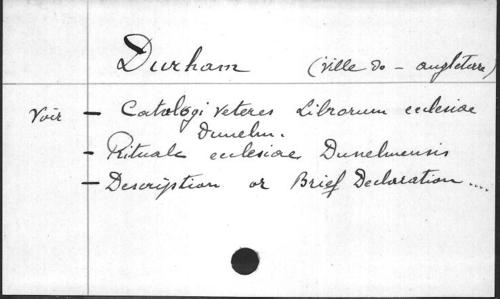 Durham (ville de - angleterre)
Voir - Catalogi veteres Librorum ecclesiae
Dunelm.
- Rituale ecclesiae Dunelmensis
- Description or Brief Declaration ....